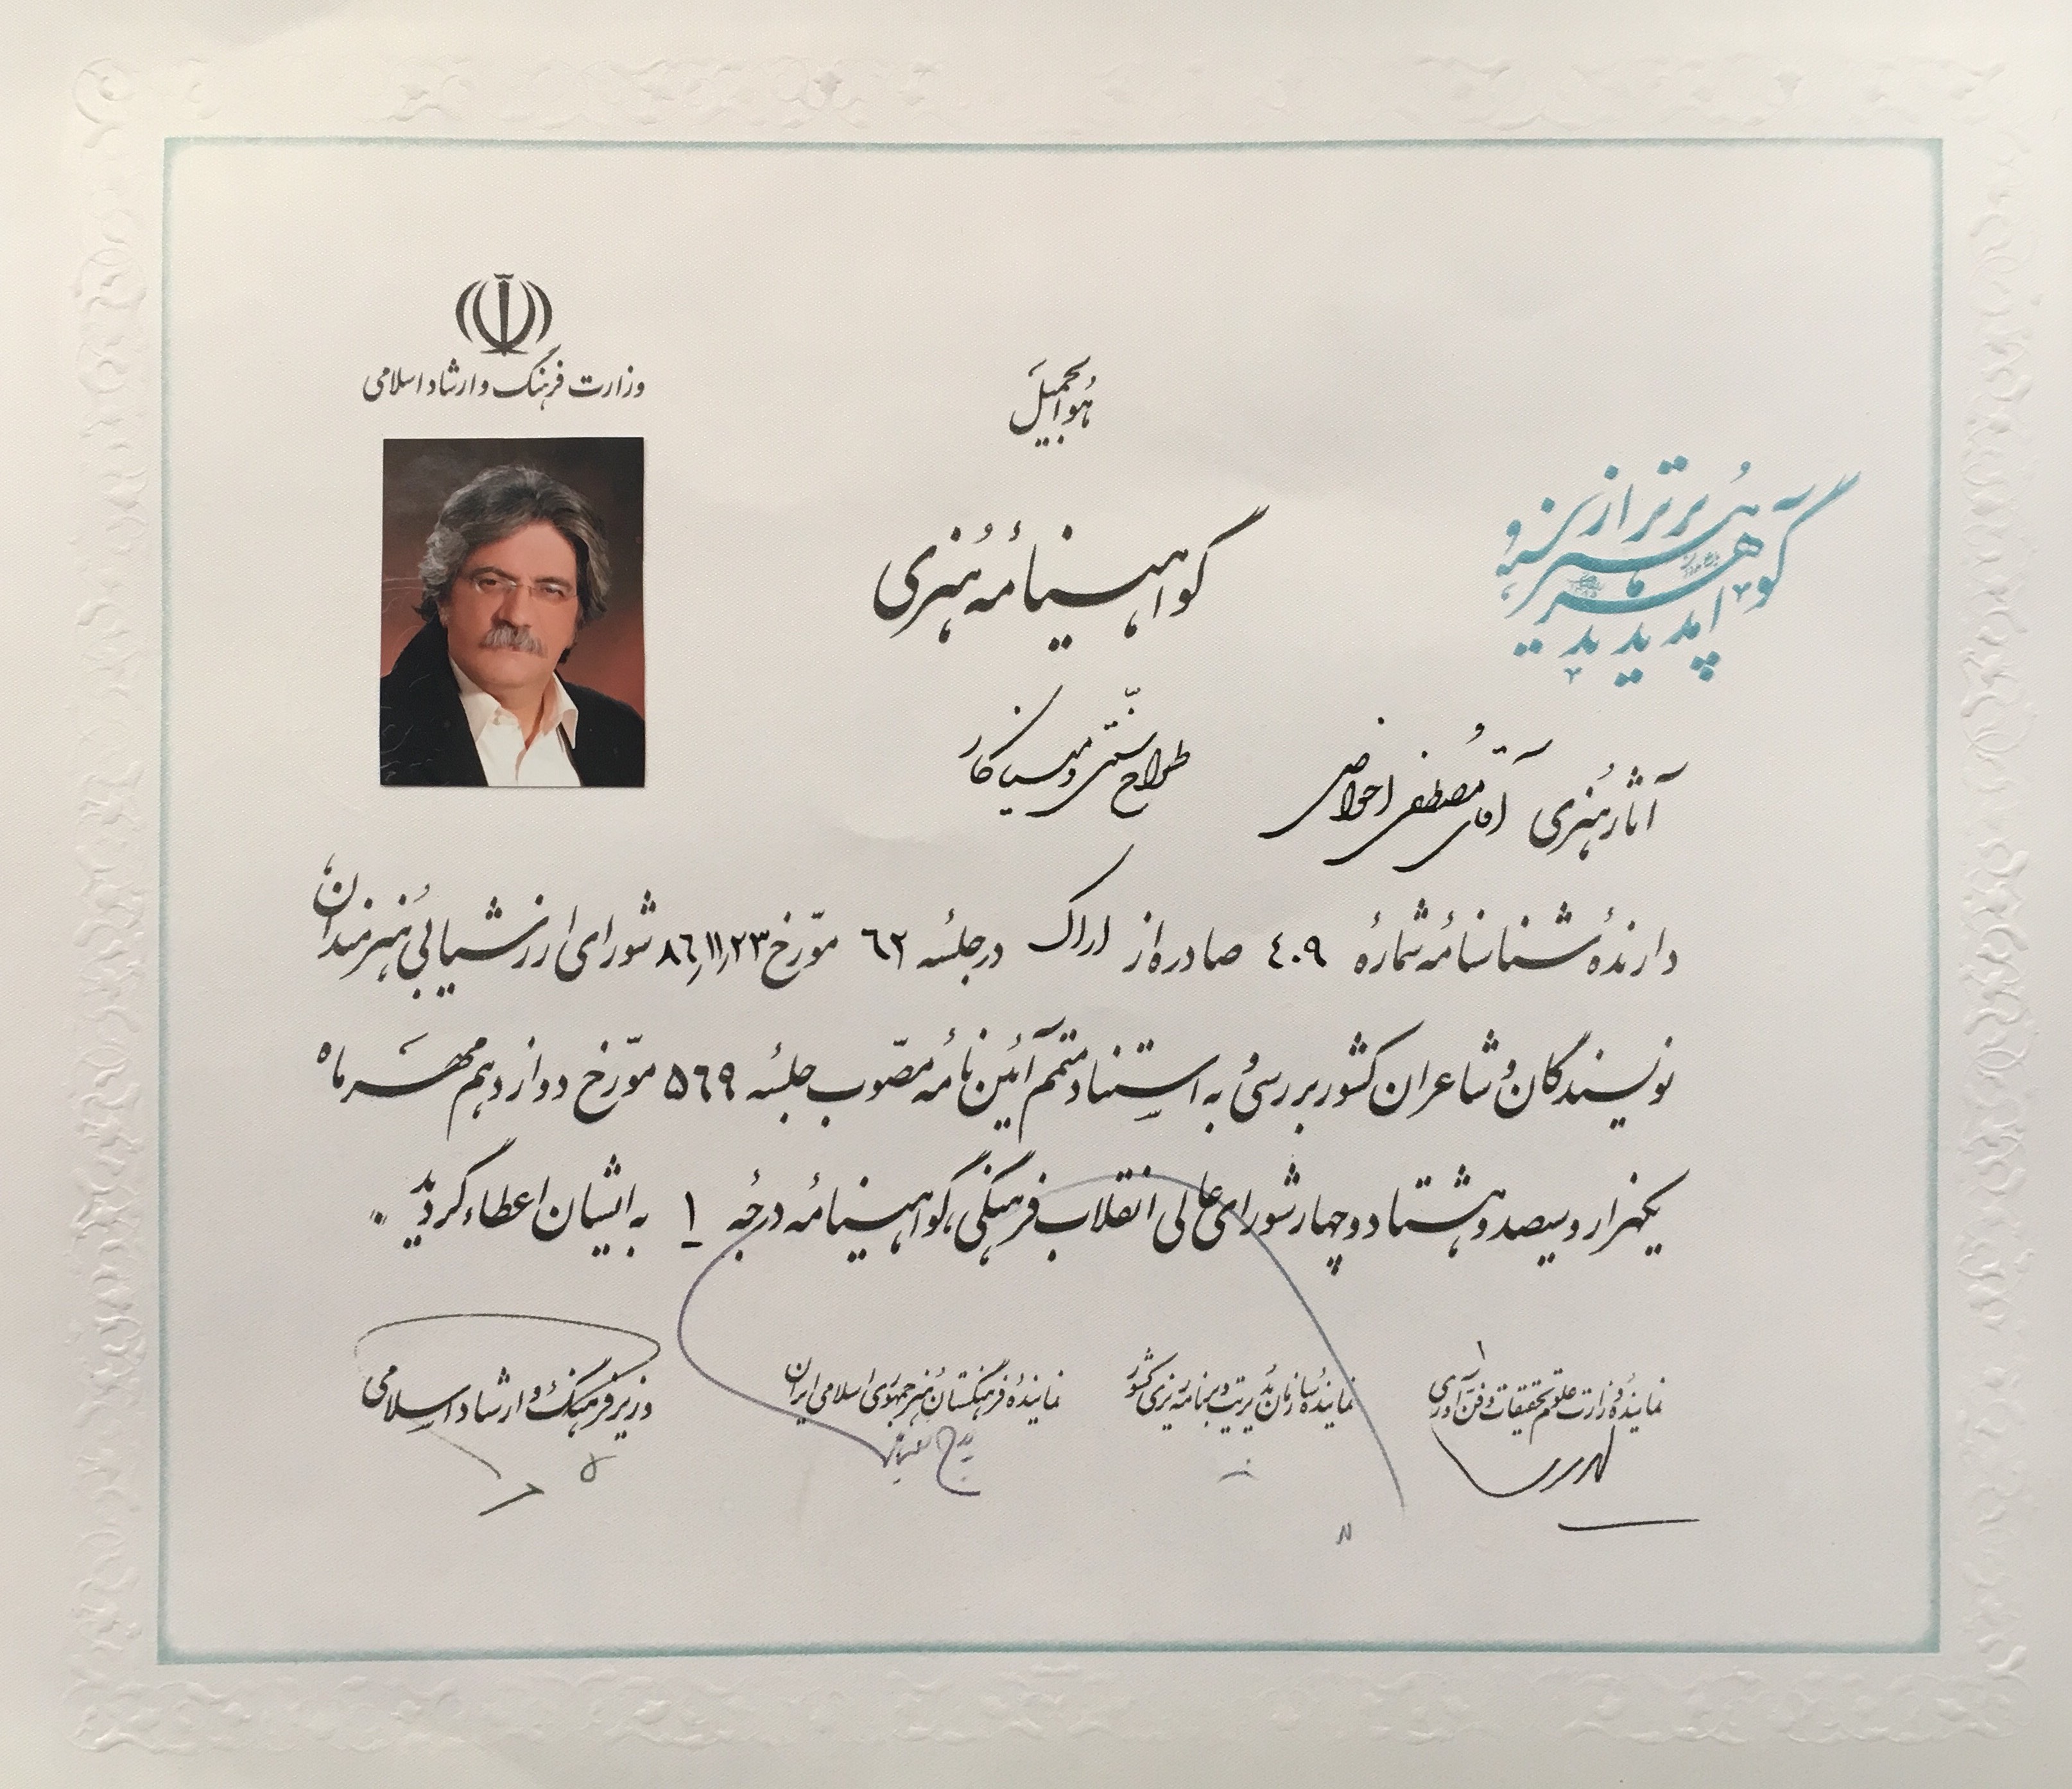 وزارت فرهنگ و ارشاد اسلامی
هُوالجمیل
گواهینامه هنری
هنر برتر از گوهر آمد پدید
طراح سنتی و میناکار
آثار هُنری آقای مصطفی اخواصی
دارندهٔ شناسنامهٔ شمارهٔ ٤٠٩ صادره از اراک در جلسهٔ ٦٢ مورّخ ٨٦/١١/٢٣ شورای ارزشیابی هُنرمندان،
نویسندگان و شاعران کشور بررسی و به استناد متمم آئین نامهٔ مصّوب جلسهٔ ٥٦٩ مورّخ دوازدهم مهرماه
یکهزار و سیصد و هشتاد و چهار شورای عالی انقلاب فرهنگی، گواهینامهٔ درجهٔ ١ به ایشان اعطاء گردید.
نمایندهٔ وزارت علوم تحقیقات و فن آوری
نمایندهٔ سازمان مدیریت و برنامه ریزی کشور
نمایندهٔ فرهنگستان هنر جمهوری اسلامی ایران
وزیر فرهنگ و ارشاد اسلامی